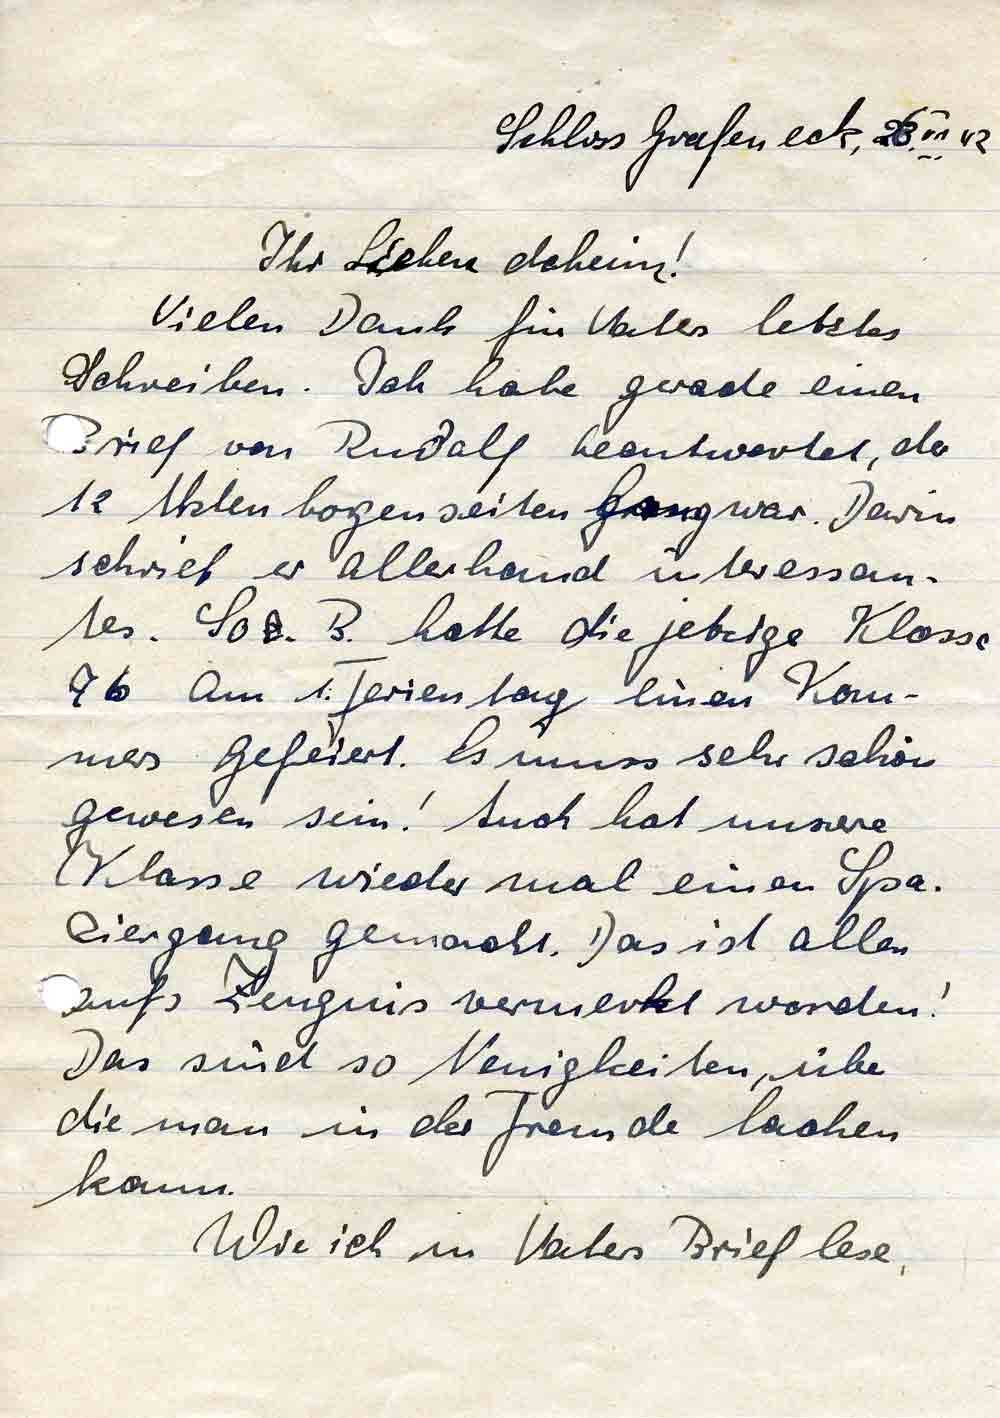 Schloss Grafeneck, 26. VII 42
Ihr Lieben daheim!
Vielen Dank für Vaters letztes
Schreiben. Ich habe gerade einen
Brief von Rudolf beantwortet, der
12 Aktenbogenseiten lang war. Darin
schrieb er allerhand interessan-
tes. So z. B. hatte die jetzige Klasse
7b am 1. Ferientag einen Kom-
mers gefeiert. Es muss sehr schön
gewesen sein! Auch hat unsere
Klasse wieder mal einen Spa-
ziergang gemacht. Das ist allen
aufs Zeugnis vermerkt worden!
Das sind so Neuigkeiten, über
die man in der Fremde lachen
kann.
Wie ich in Vaters Brief lese,